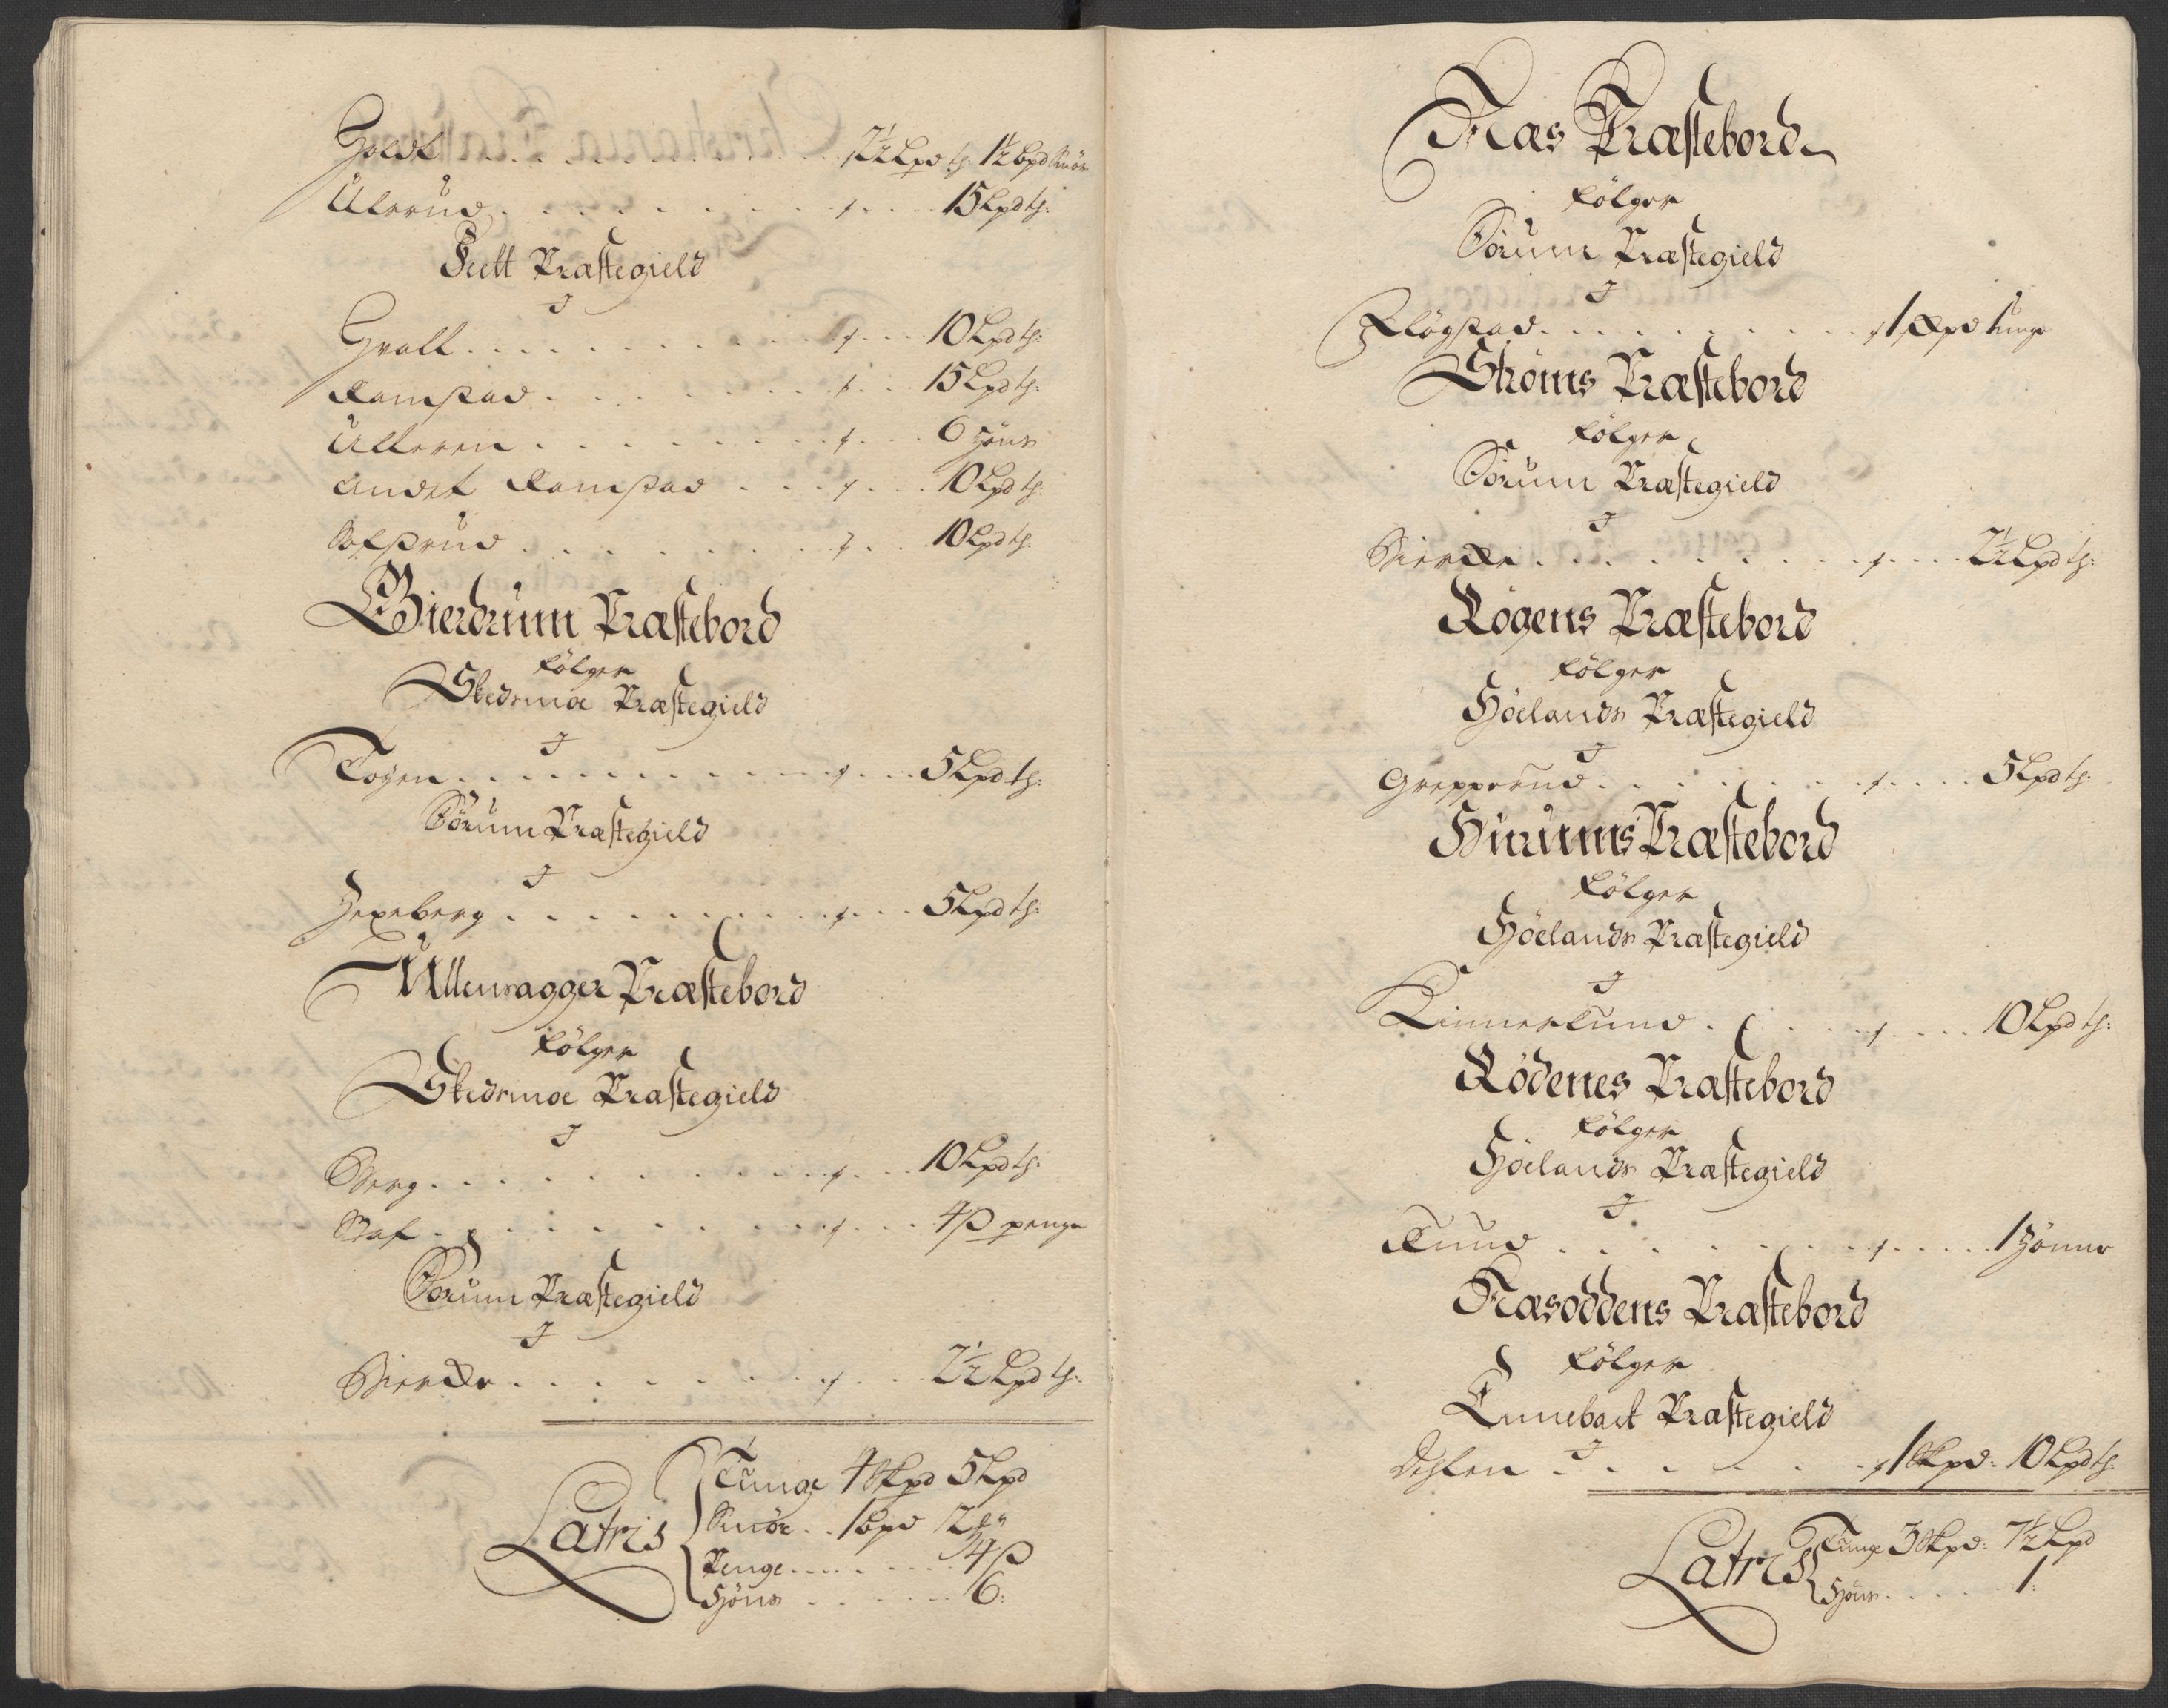 Holdt . . . . 7½ Lpd tg: 1½ bpd Smör
Ulerud . . . . 15 Lpd tg:
Feett Præstegield
I
Hvall . . . . 10 Lpd tg:
Ramstad . . . . 15 Lpd tg:
Ulleren . . . . 6 Höns
Andet Ramstad . . . . 10 Lpd tg:
Solsrud . . . . 10 Lpd tg:
Gierdrum Præstebord
følger
Skedsmoe Præstegield
I
Toÿen . . . . 5 Lpd tg:
Sörum Præstegield
I
Hexeberg . . . . 5 Lpd tg:
Ullensagger Præstebord
følger
Skedsmoe Præstegield
I
Berg . . . . 10 Lpd tg:
Staf . . . . 4 ß penge
Sörum Præstegield
I
Biercke . . . . 2½ Lpd tg:
Latris
Tunge 4 Skpd 5 Lpd
Smör . . 1 bpd 12
Penge . . . . 4 ß
Höns . . . . 6:
Næs Præstebord
følger
Sörum Præstegield
I
Fløgstad . . . . 1 Skpd tunge
Ströms Præstebord
følger
Sörum Præstegield
I
Biercke . . . . 2½ Lpd tg:
Rögens Præstebord
følger
Höelands Præstegield
I
Grepperud . . . . 5 Lpd tg:
Hurums Præstebord
følger
Höelands Præstegield
I
Kinnerlund . . . . 10 Lpd tg:
Rödenes Præstebord
følger
Höelands Præstegield
I
Rund . . . . 1 Hönne
Næsoddens Præstebord
følger
Enneback Præstegield
I
Østen . . . . 1 Skpd: 10 Lpd tg:
Latris
Tunge 3 Skpd: 7½ Lpd
Höns . . . . 1: